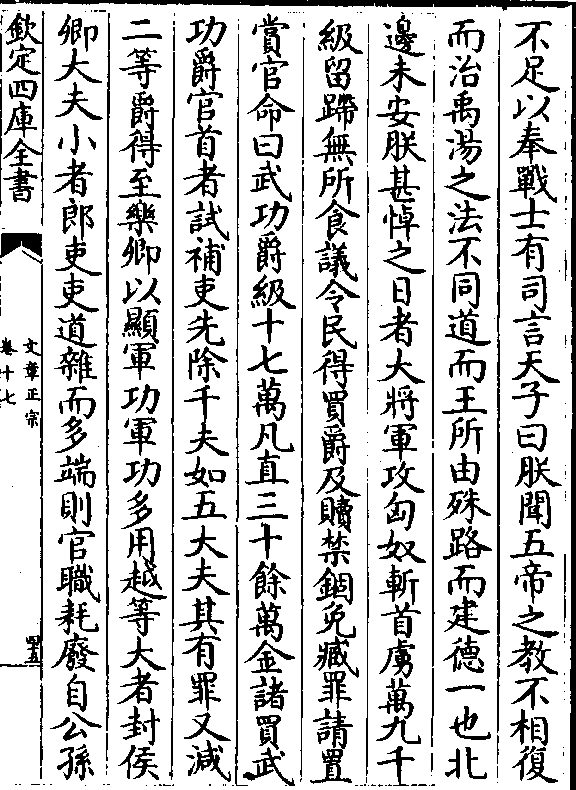 不足以奉戰士有司言天子曰朕聞五帝之教不相復
而治禹湯之法不同道而王所由殊路而建德一也北
邊未安朕甚悼之日者大將軍攻匈奴斬首虜萬九千
級留蹛無所食議令民得買爵及贖禁錮免臧罪請置
賞官命曰武功爵級十七萬凡直三十餘萬金諸買武
功爵官首者試補吏先除千夫如五大夫其有罪又減
二等爵得至樂卿以顯軍功軍功多用越等大者封侯
卿大夫小者郎吏吏道雜而多端則官職耗廢自公孫
欽定四庫全書
文章正宗
卷十七
四十五